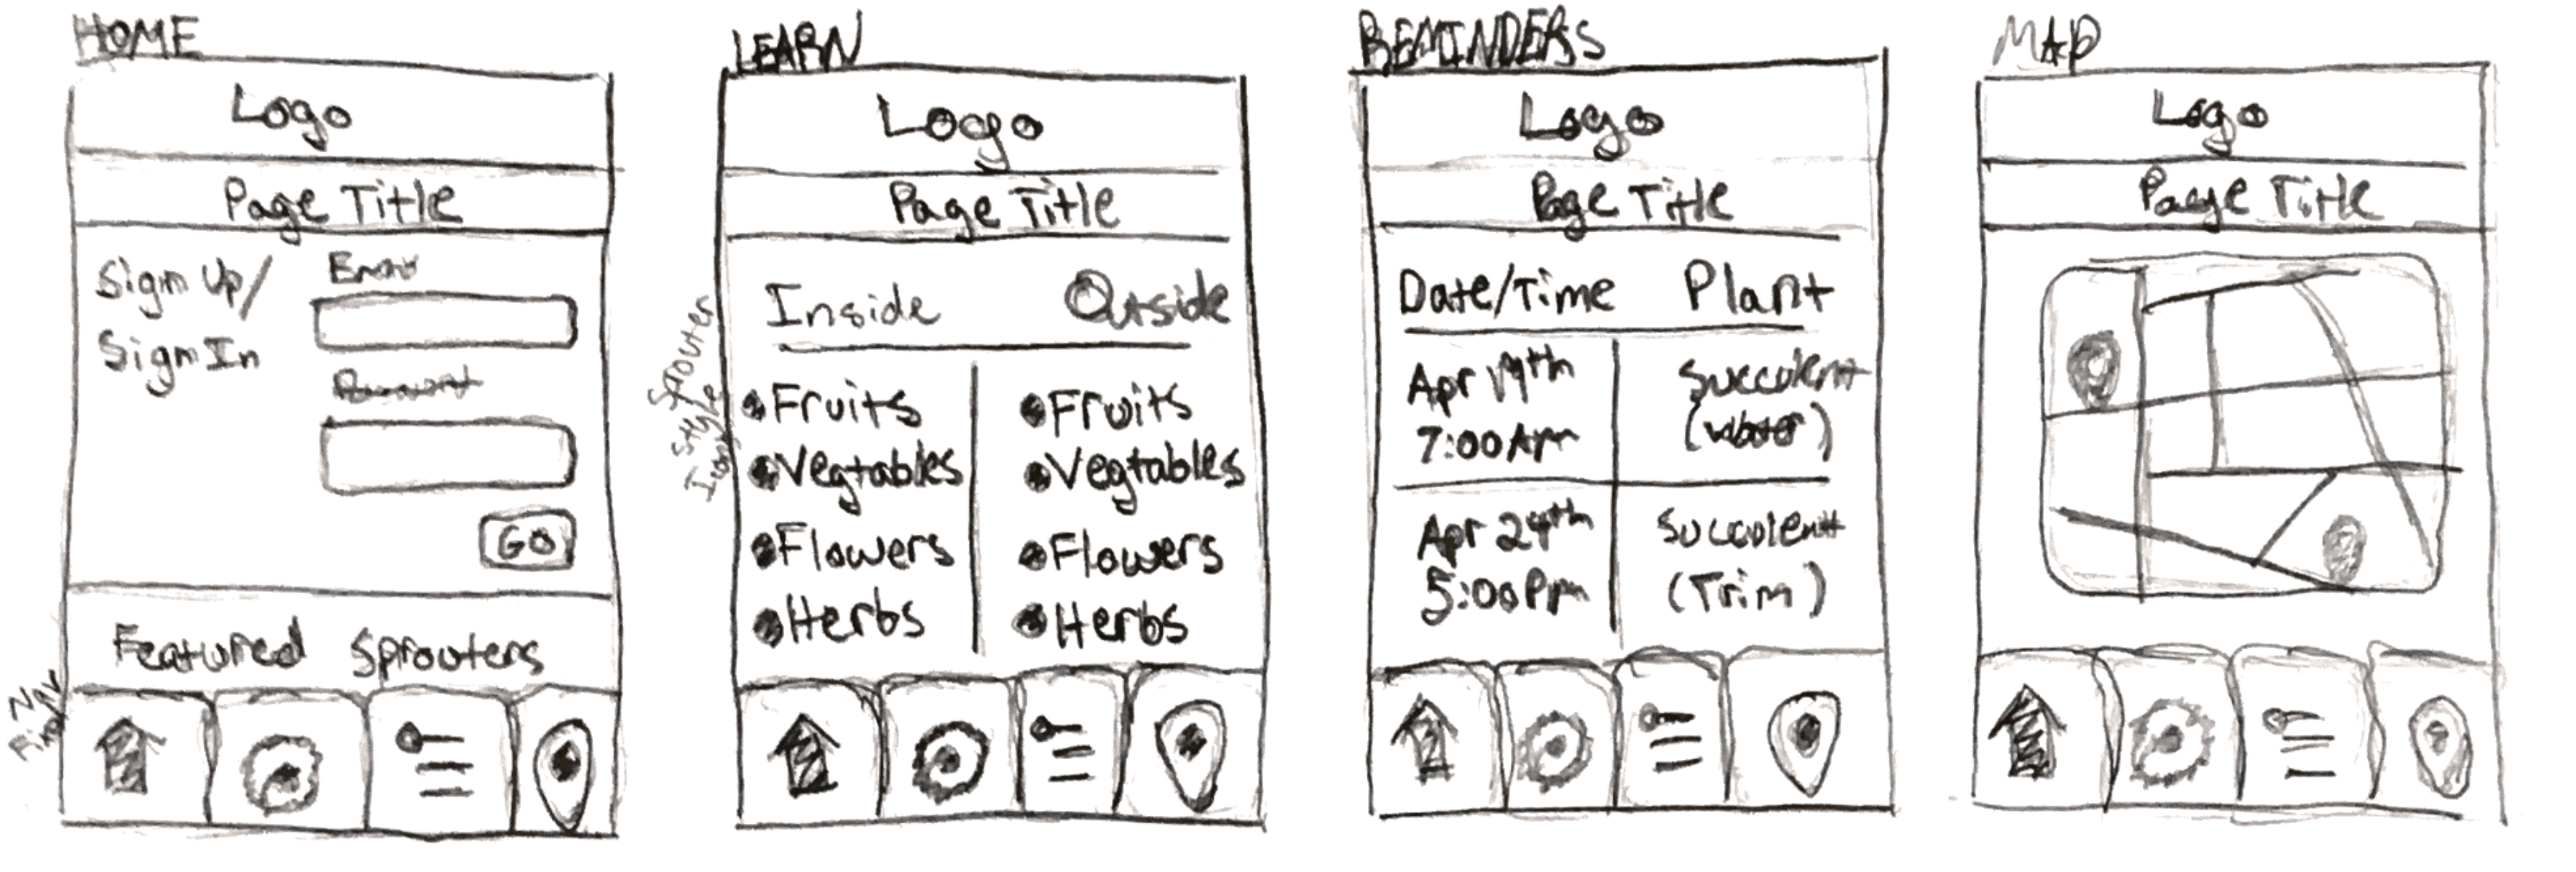 HOME
Logo
Page Title
Sign Up/
Sign In
Email
GO
Featured Sprouters
Nav
LEARN
Logo
Page Title
Inside Outside
Fruits
Vegtables
Flowers
Herbs
Fruits
Vegtables
Flowers
Herbs
Sprouter
Style
Icons
REMINDERS
Logo
Page Title
Date/Time Plant
Apr 19th
7:00Am
Succulent
(water)
Apr 24th
5:00Pm
Succulent
(Trim)
MAP
Logo
Page Title